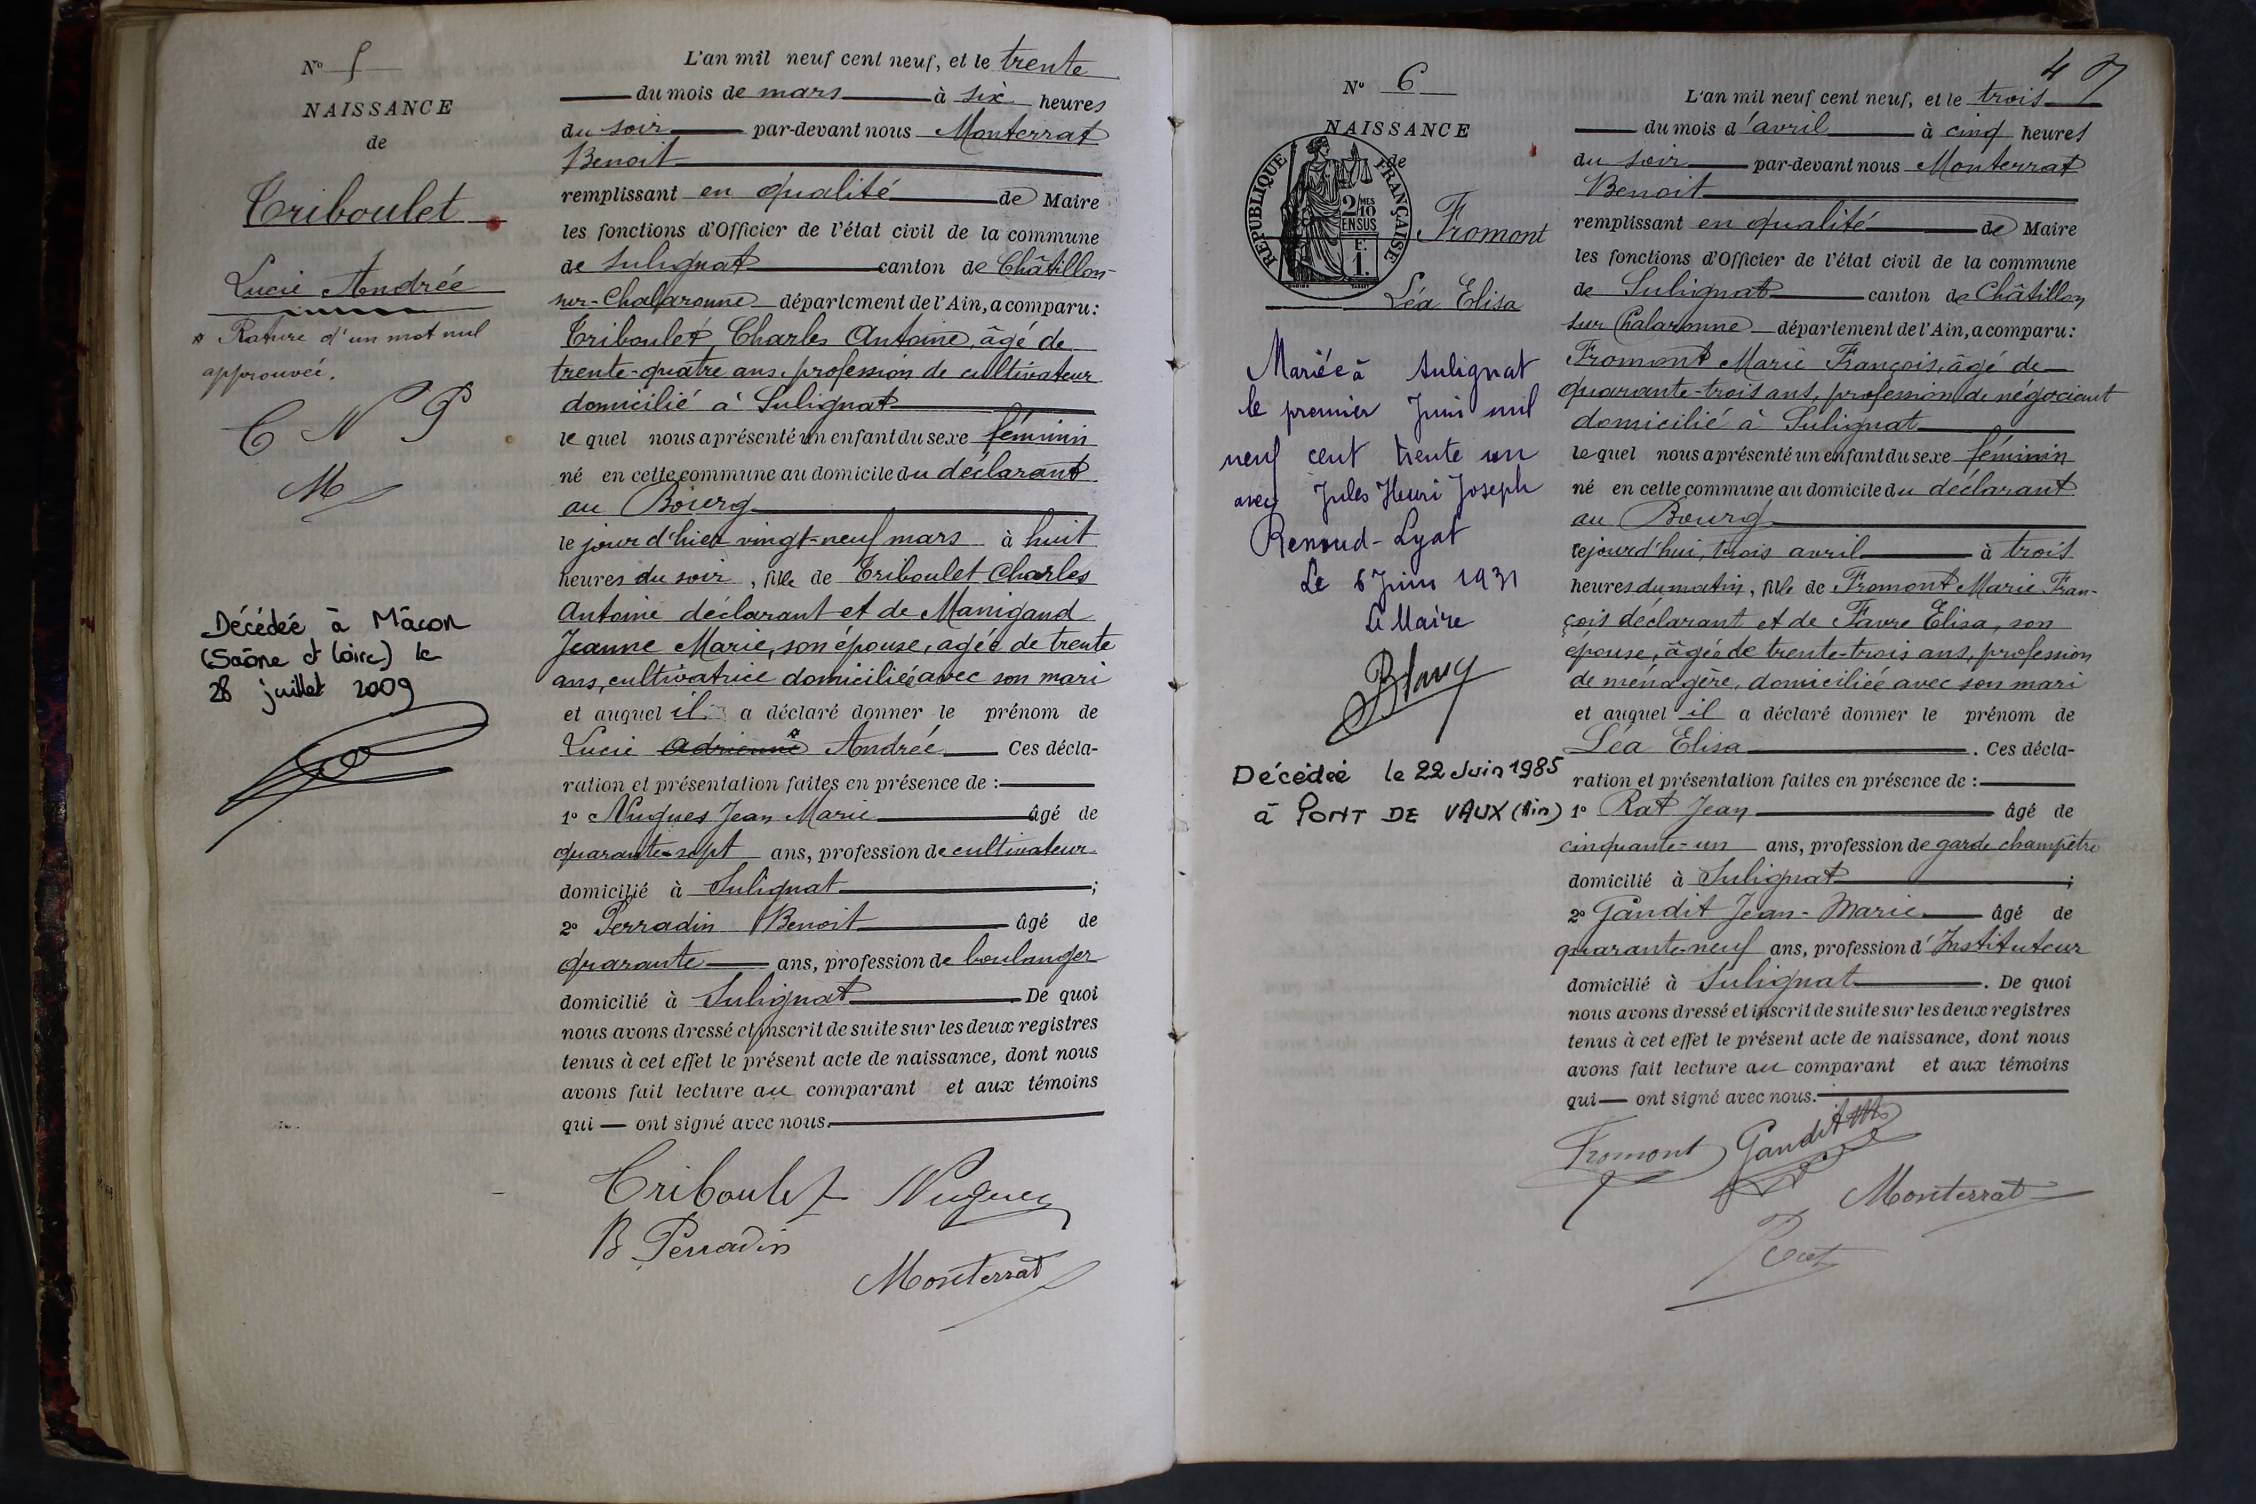 N° 5
NAISSANCE
de
Triboulet
Lucie Andrée
* Rature d'un mot nul
approuvée.
C N P
M
Décédée à Mâcon
(Saône et Loire) le
28 juillet 2009
L'an mil neuf cent neuf, et le trente
du mois de mars à six heures
du soir par-devant nous Monterrat
Benoit
remplissant en qualité de Maire
les fonctions d'Officier de l'état civil de la commune
de Sulignat canton de Châtillon-
sur-Chalaronne département de l'Ain, a comparu :
Triboulet Charles Antoine, âgé de
trente-quatre ans, profession de cultivateur
domicilié à Sulignat
le quel nous a présenté un enfant du sexe féminin
né en cette commune au domicile du déclarant
au Bourg
le jour d'hier vingt-neuf mars à huit
heures du soir, fille de Triboulet Charles
Antoine déclarant et de Manigand
Jeanne Marie, son épouse, agée de trente
ans, cultivatrice domiciliée avec son mari
et auquel il a déclaré donner le prénom de
Lucie Adrienne* Andrée Ces décla-
ration et présentation faites en présence de :
1° Nugues Jean Marie âgé de
quarante-sept ans, profession de cultivateur
domicilié à Sulignat ;
2° Perradin Benoit âgé de
quarante ans, profession de boulanger
domicilié à Sulignat De quoi
nous avons dressé et inscrit de suite sur les deux registres
tenus à cet effet le présent acte de naissance, dont nous
avons fait lecture au comparant et aux témoins
qui ont signé avec nous.
Triboulet Nugues
B Perradin
Monterrat
47
N° 6
NAISSANCE
de
RÉPUBLIQUE FRANÇAISE
2/10 MES
EN SUS
F.
1.
Fromont
Léa Elisa
Mariée à Sulignat
le premier Juin mil
neuf cent trente un
avec Jules Henri Joseph
Renoud-Lyat
Le 6 Juin 1931
Le Maire
Décédée le 22 Juin 1985
à PONT DE VAUX (Ain)
L'an mil neuf cent neuf, et le trois
du mois d'avril à cinq heures
du soir par-devant nous Monterrat
Benoit
remplissant en qualité de Maire
les fonctions d'Officier de l'état civil de la commune
de Sulignat canton de Châtillon
sur Chalaronne département de l'Ain, a comparu :
Fromont Marie François, âgé de
quarante-trois ans, profession de négociant
domicilié à Sulignat
le quel nous a présenté un enfant du sexe féminin
né en cette commune au domicile du déclarant
au Bourg
cejourd'hui, trois avril à trois
heures du matin, fille de Fromont Marie Fran-
çois déclarant et de Favre Elisa, son
épouse, âgée de trente-trois ans, profession
de ménagère, domiciliée avec son mari
et auquel il a déclaré donner le prénom de
Léa Elisa . Ces décla-
ration et présentation faites en présence de :
1° Rat Jean âgé de
cinquante-un ans, profession de garde champêtre
domicilié à Sulignat ;
2° Gandit Jean-Marie âgé de
quarante-neuf ans, profession d'Instituteur
domicilié à Sulignat . De quoi
nous avons dressé et inscrit de suite sur les deux registres
tenus à cet effet le présent acte de naissance, dont nous
avons fait lecture au comparant et aux témoins
qui ont signé avec nous.
Fromont Gandit
Monterrat
Rat